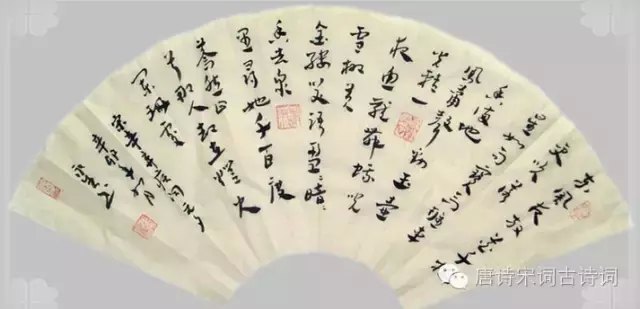 东风夜放花千树
更吹落
星如雨宝马雕车
香满路
凤箫声动玉壶
光转一
夜鱼龙舞蛾儿
雪柳黄
金缕笑语盈盈暗
香去众
里寻他千百度
蓦然回
首那人却在灯火
阑珊处
宋辛弃疾词元夕
辛卯
书
唐诗宋词古诗词